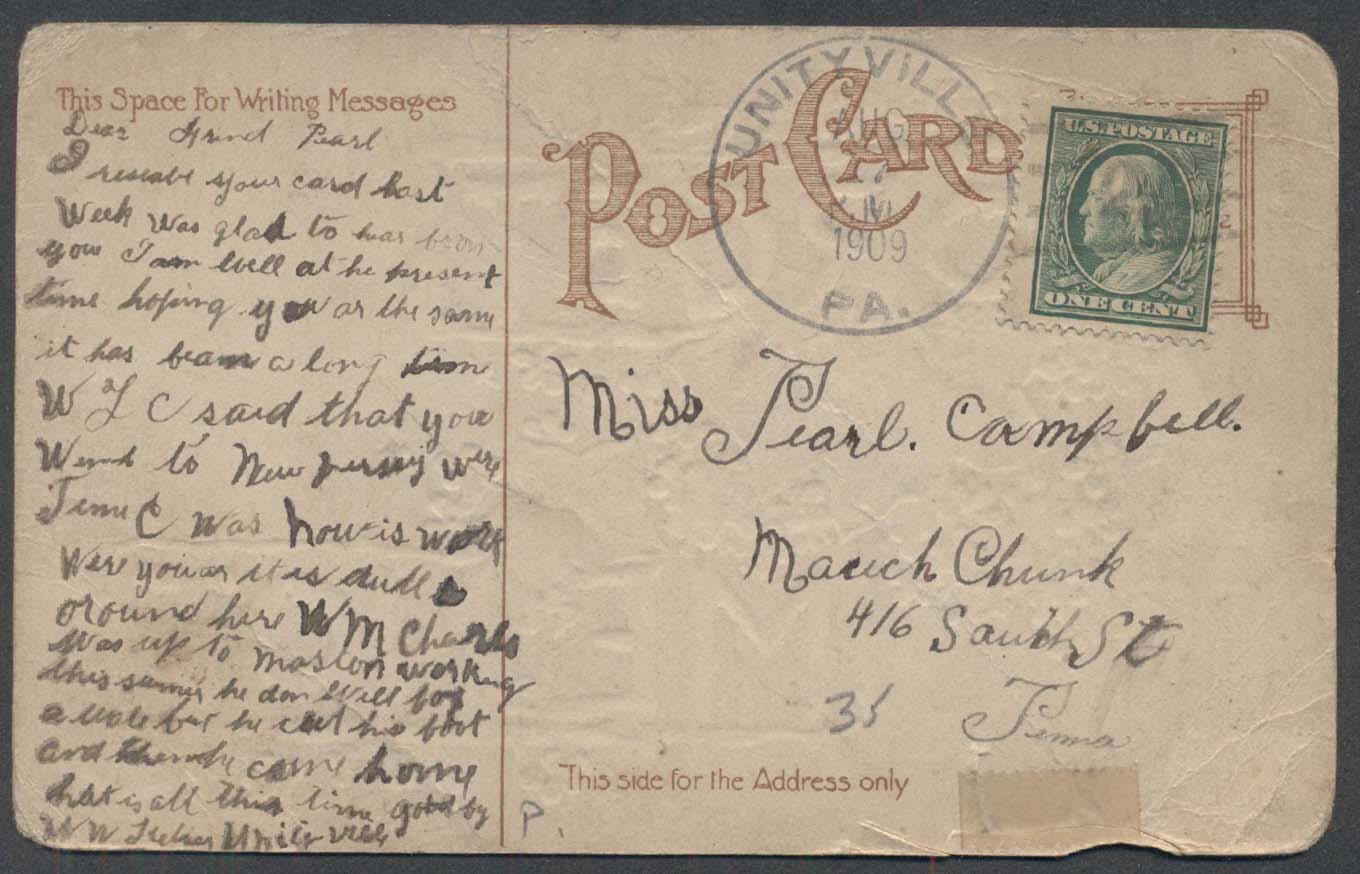 This Space For Writing Messages
Dear Frind Pearl
I reseabe your card last
Week Was glad to hear from
you I am Well at he present
time hoping you ar the same
it has beam a long time
W L C said that you
Wend to New Jersey Were
Jenn C Was how is work
Were you ar it is dull
oround here W M Charls
Was up to Masten working
this sumer he don Well for
a Wile but he cut his foot
and then he came home
that is all this time good by
W W Unityville
POST CARD
UNITYVILLE
AUG
17
1909
PA.
U.S. POSTAGE
ONE CENT
Miss Pearl. Campbell.
Mauch Chunk
416 South St
35 Penna
This side for the Address only
P.